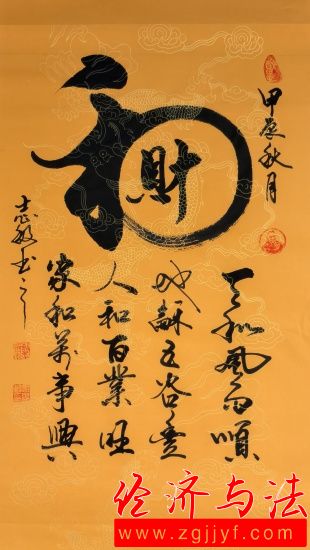 甲辰秋月
和
財
天和風雨順
地龢五谷豐
人和百業旺
家和萬事興
经济与法
www.zgjjyf.com